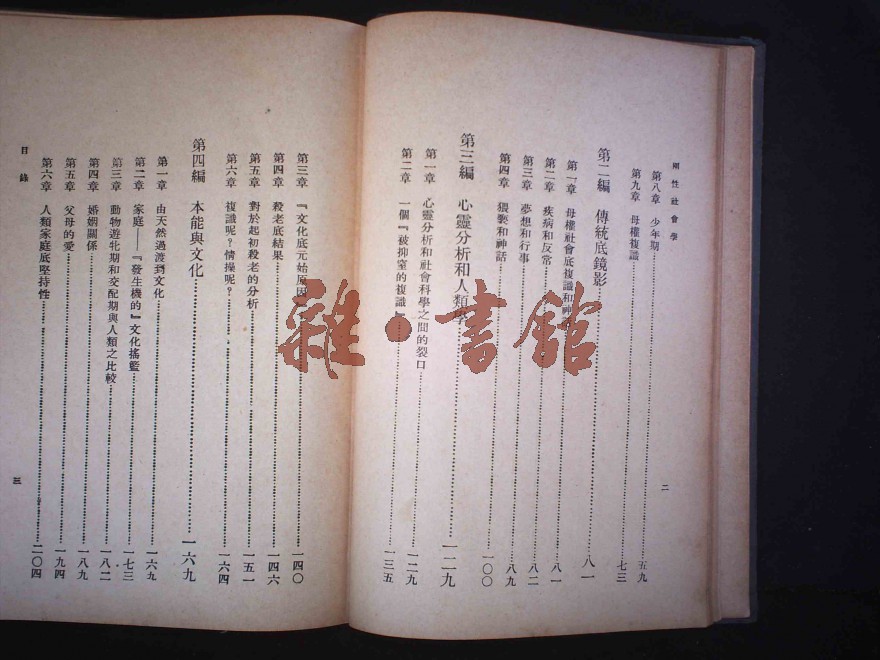 兩性社會學
第八章 少年期……五九
第九章 母權複識……七三
第二編 傳統底鏡影……八一
第一章 母權社會底複識和神
第二章 疾病和反常……八一
第三章 夢想和行事……八二
第四章 猥褻和神話……八九
第三編 心靈分析和人類學……一二九
第一章 心靈分析和社會科學之間的裂口……一二九
第二章 一個『被抑窒的複識』……一三五
二
第三章 『文化底元始原因』……一四〇
第四章 殺老底結果……一四六
第五章 對於起初殺老的分析……一五一
第六章 複識呢？情操呢？……一六四
第四編 本能與文化……一六九
第一章 由天然過渡到文化……一六九
第二章 家庭——『發生機的』文化搖籃……一七三
第三章 動物遊牝期和交配期與人類之比較……一八二
第四章 婚姻關係……一八九
第五章 父母的愛……一九四
第六章 人類家庭底堅持性……二〇四
目錄
三
雜·書館